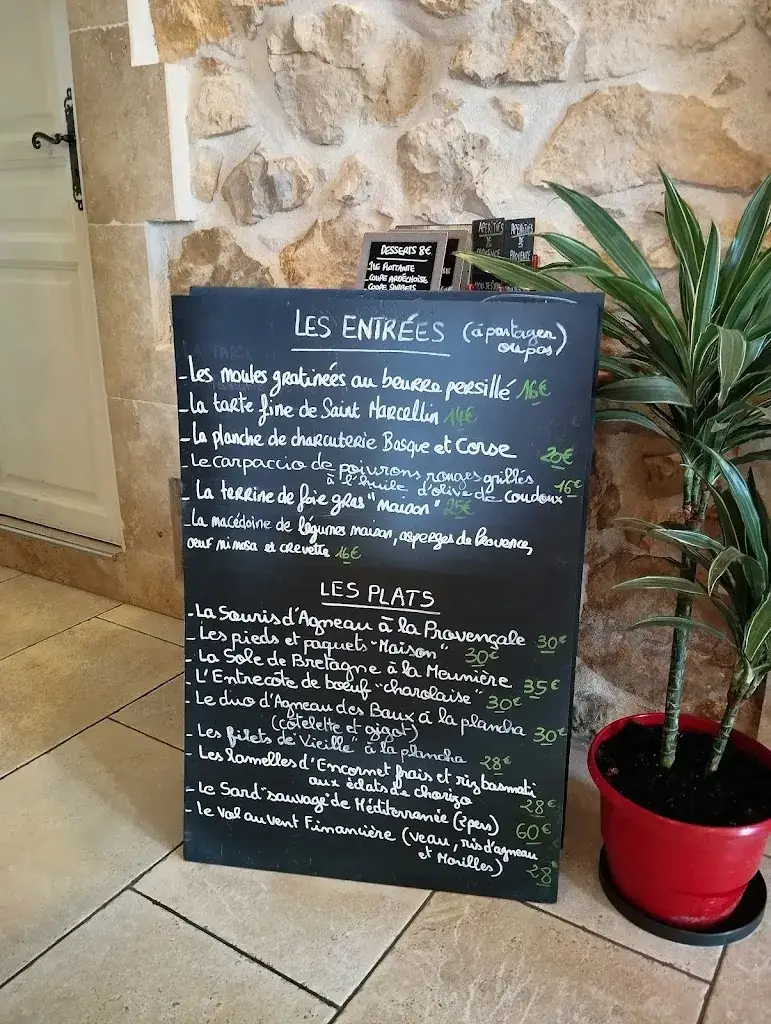 DESSERTS 8€
ÎLE FLOTTANTE
COUPE ARDÉCHOISE
COUPE SORBETS
APERITIFS
DE
PROVENCE
APERITIFS
DE
PROVENCE
LES ENTRÉES (à partager
ou pas)
- Les moules gratinées au beurre persillé 16€
- La tarte fine de Saint Marcellin 14€
- La planche de charcuterie Basque et Corse 20€
- Le carpaccio de poivrons rouges grillés
à l'huile d'olive de Coudoux 16€
- La terrine de foie gras "maison" 25€
- La macédoine de légumes maison, asperges de Provence,
oeuf mimosa et crevette 16€
LES PLATS
- La Souris d'Agneau à la Provençale 30€
- Les pieds et paquets "Maison" 30€
- La Sole de Bretagne à la Meunière 35€
- L'Entrecôte de boeuf "charolaise" 30€
- Le duo d'Agneau des Baux à la plancha 30€
(côtelette et gigot)
- Les filets de "Vieille" à la plancha 28€
- Les lamelles d'Encornet frais et riz basmati
aux éclats de chorizo 28€
- Le Sard "sauvage" de Méditerranée (2pers) 60€
- Le vol au vent Financière (veau, ris d'agneau
et Morilles) 28€